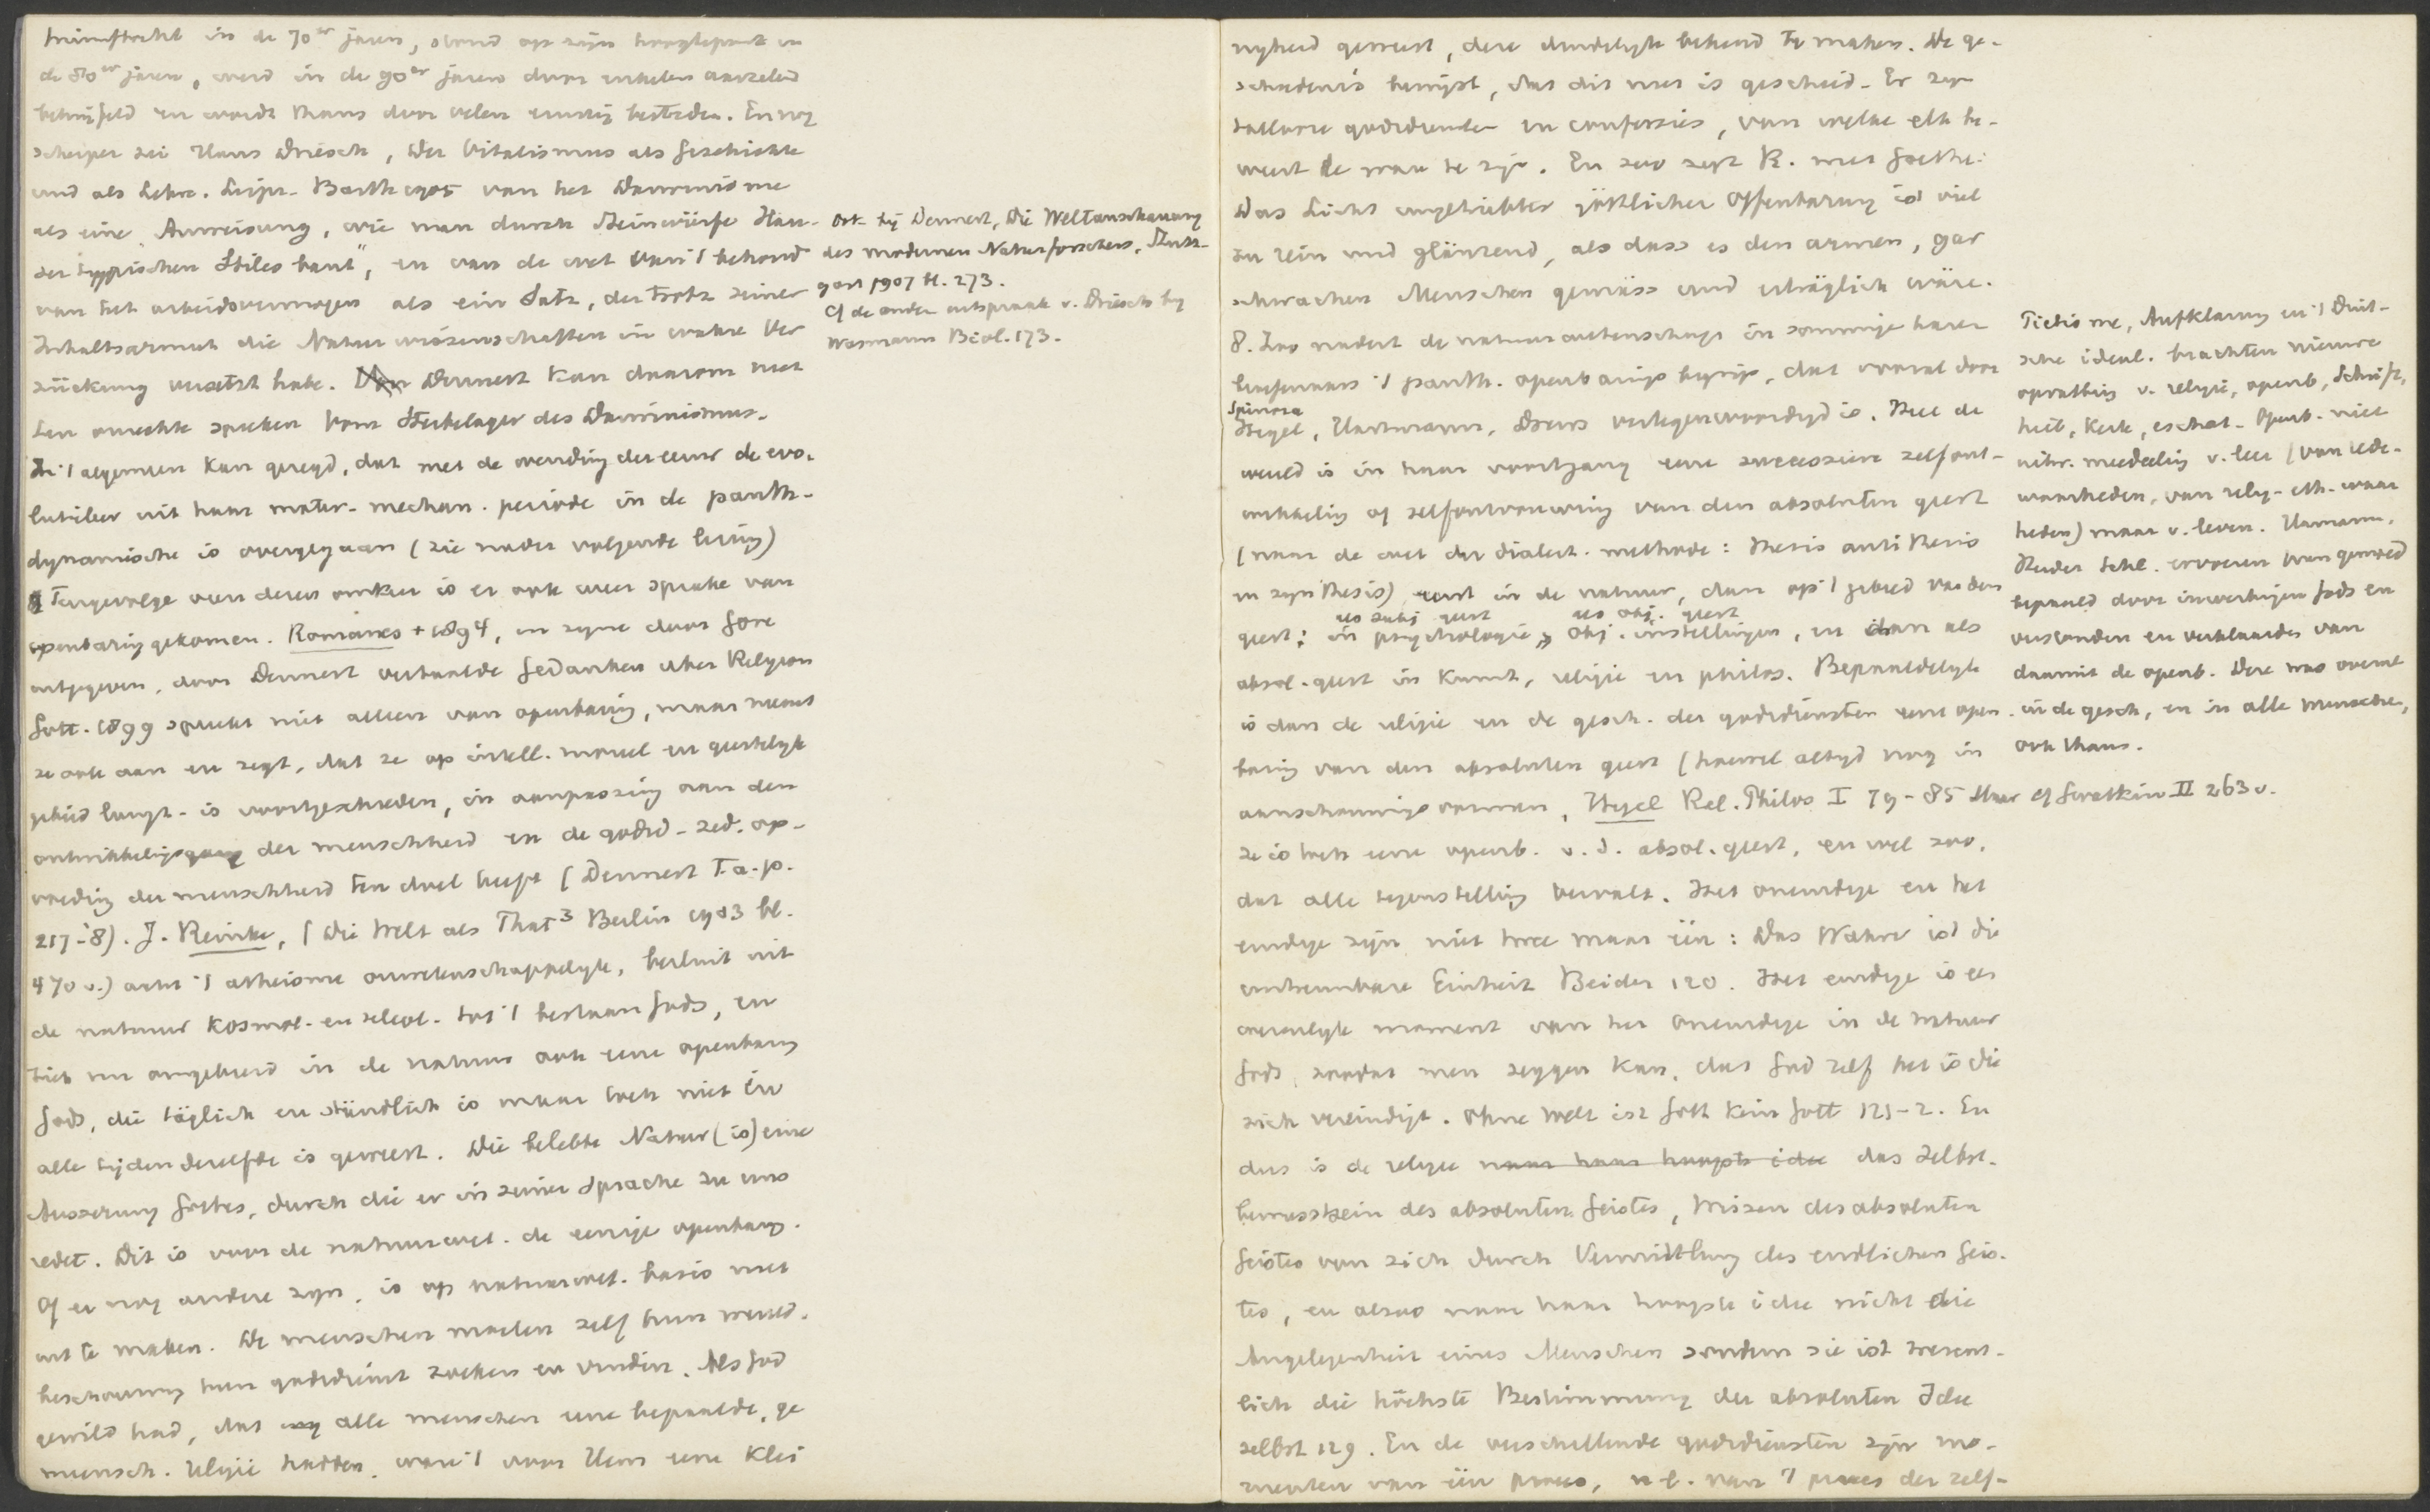 triumftocht in de 70er jaren, stond op zijn hoogtepunt in
de 80er jaren, werd in de 90er jaren door enkelen aarzelend
betwijfeld en wordt thans door velen ernstig bestreden. En nog
scherper zei Hans Driesch, Der Vitalismus als Geschichte
und als Lehre. Leipz. Barth 1905 van het Darwinisme
als eine Anweisung, wie man durch Steinwürfe Häu-
ser typischen Stiles baut", en van de wet van 't behoud
van het arbeidsvermogen als ein Satz, der trotz seiner
Inhaltsarmut die Naturwissenschaften in wahre Ver
zückung versetzt habe. Dennert kan daarom niet
ten onrechte spreken vom Sterbelager des Darwinismus.
In 't algemeen kan gezegd, dat met de wending der eeuw de evo-
lutieleer uit haar mater. mechan. periode in de panth.
dynamische is overgegaan (zie nader volgende lezing)
Tengevolge van dezen omkeer is er ook weer sprake van
openbaring gekomen. Romanes + 1894, in zijne door Gore
uitgegeven, door Dennert vertaalde Gedanken über Religion
Gött. 1899 spreekt niet alleen van openbaring, maar neemt
ze ook aan en zegt, dat ze op intell. moreel en geestelijk
gebied langz. is voortgeschreden, in aanpassing aan den
ontwikkelingsgang der menschheid en de godsd. zed. op-
voeding der menschheid ten doel heeft (Dennert t.a.p.
217-'8). J. Reinke, (Die Welt als That3 Berlin 1903 bl.
470 v.) acht 't atheisme onwetenschappelijk, besluit uit
de natuur kosmol. en teleol. tot 't bestaan Gods, en
ziet nu omgekeerd in de natuur ook eene openbaring
Gods, die täglich en stündlich is maar toch niet in
alle tijden dezelfde is geweest. Die belebte Natur (is) eine
Äusserung Gottes, durch die er in seiner Sprache zu uns
redet. Dit is voor de natuurwet. de eenige openbaring.
Of er nog andere zijn, is op natuurwet. basis niet
uit te maken. De menschen moeten zelf hun wereld-
beschouwing hun godsdienst zoeken en vinden. Als God
gewild had, dat alle menschen eene bepaalde, ge
mensch. religie hadden, ware 't voor Hem eene klei
ook bij Dennert, Die Weltanschauung
des modernen Naturforschers, Stutt-
gart 1907 bl. 273.
cf de andere uitspraak v. Driesch bij
Wasmann Biol. 173.
nigheid geweest, deze duidelijk bekend te maken. De ge-
schiedenis bewijst, dat dit niet is geschied. Er zijn
tallooze godsdiensten en confessies, van welke elk be-
weert de ware te zijn. En zoo zegt R. met Goethe:
Das Licht ungetrübter göttlicher Offenbarung ist viel
zu rein und glänzend, als dass es den armen, gar
schwachen Menschen gemäss und erträglich wäre.
8. Zoo nadert de natuurwetenschap in sommige harer
beoefenaars 't panth. openbaringsbegrip, dat vooral door
Spinoza
Hegel, Hartmann, Drews vertegenwoordigd is. Heel de
wereld is in haar voortgang eene successieve zelfont-
wikkeling of zelfontvouwing van den absoluten geest
(naar de wet der dialect. methode: thesis antithesis
en synthesis) eerst in de natuur, dan op 't gebied van den
als subj geest als obj. geest
geest: in psychologie, obj. instellingen, en dan als
absol. geest in kunst, religie en philos. Bepaaldelijk
is dan de religie en de gesch. der godsdiensten eene open-
baring van den absoluten geest (hoewel altijd nog in
aanschouwingsvormen, Hegel Rel. Philos I 79-85
ze is toch eene openb. v. d. absol. geest, en wel zoo,
dat alle tegenstelling vervalt. Het oneindige en het
eindige zijn niet twee maar één: Das Wahre ist die
untrennbare Einheit Beider 120. Het eindige is een
wezenlijk moment van het oneindige in de natuur
Gods, zoodat men zeggen kan, dat God zelf het is die
zich vereindigt. Ohne Welt ist Gott kein Gott 121-2. En
dus is de religie naar haar hoogste idee das Selbst-
bewusstsein des absoluten Geistes, Wissen des absoluten
Geistes von sich durch Vermittlung des endlichen Geis-
tes, en alzoo naar haar hoogste idee nicht die
Angelegenheit eines Menschen sondern sie ist wesent-
lich die höchste Bestimmung der absoluten Idee
selbst 129. En de verschillende godsdiensten zijn mo-
menten van één proces, n.l. van 't proces der zelf-
Piëtisme, Aufklärung en 't Duit-
sche ideal. brachten nieuwe
opvatting v. religie, openb, Schrift,
heil, kerk, eschat. Openb. niet
uitw. mededeeling v. leer (van rede-
waarheden, van relig. eth. waar
heden) maar v. leven. Hamann,
Herder Schl. ervoeren hun gemoed
bepaald door inwerkingen Gods en
verstonden en verklaarden van
daaruit de openb. Deze was overal
in de gesch, en in alle menschen,
ook thans.
cf Gwatkin II 263 v.